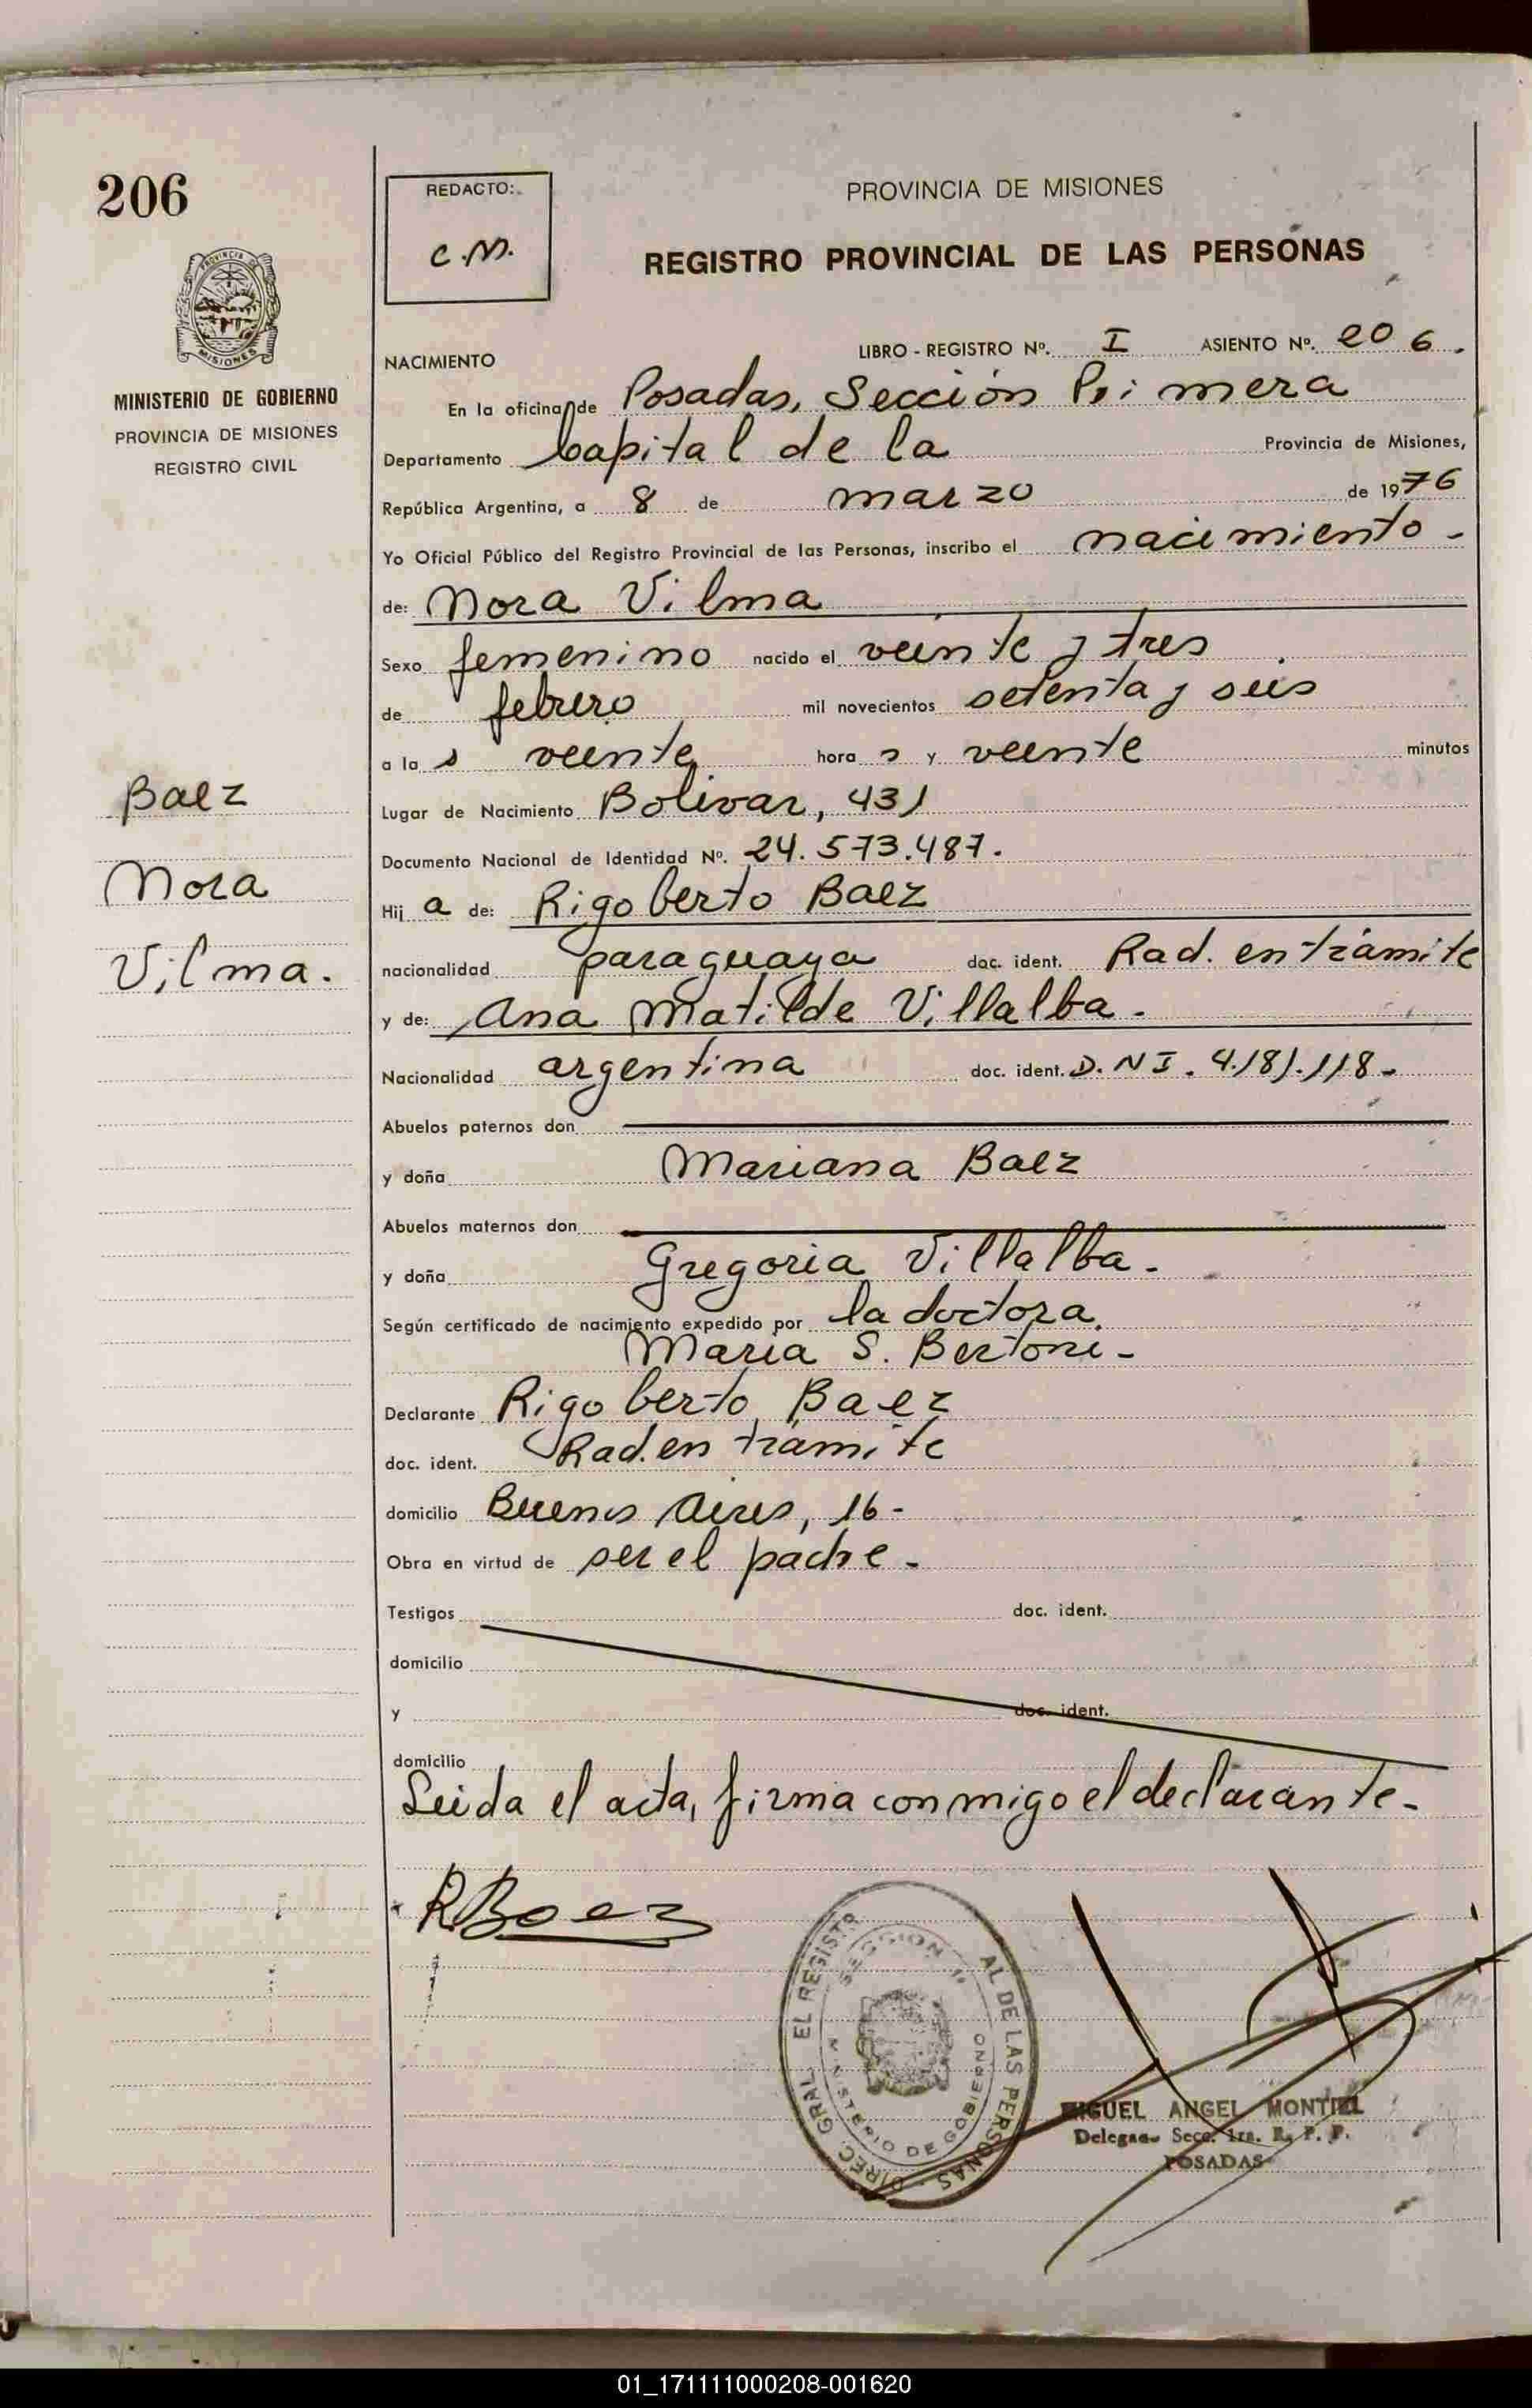 206
REDACTO:
C.M.
PROVINCIA DE MISIONES
REGISTRO PROVINCIAL DE LAS PERSONAS
PROVINCIA DE
MISIONES
MINISTERIO DE GOBIERNO
PROVINCIA DE MISIONES
REGISTRO CIVIL
LIBRO - REGISTRO Nº. I ASIENTO Nº. 206.
NACIMIENTO
En la oficina de Posadas, Sección Primera
Departamento Capital de la Provincia de Misiones,
República Argentina, a 8 de marzo de 1976
Yo Oficial Público del Registro Provincial de las Personas, inscribo el nacimiento -
de: Nora Vilma
Sexo femenino nacido el veinte y tres
de febrero mil novecientos setenta y seis
a las veinte horas y veinte minutos
Baez
Nora
Vilma.
Lugar de Nacimiento Bolivar, 431
Documento Nacional de Identidad Nº. 24.573.487.
Hija de: Rigoberto Baez
nacionalidad paraguaya doc. ident. Rad. en trámite
y de: Ana Matilde Villalba.
Nacionalidad argentina doc. ident. D.NI. 4.181.118-
Abuelos paternos don
y doña Mariana Baez
Abuelos maternos don
y doña Gregoria Villalba.
Según certificado de nacimiento expedido por la doctora
Maria S. Bertoni-
Declarante Rigoberto Baez
doc. ident. Rad. en trámite
domicilio Buenos Aires, 16-
Obra en virtud de ser el padre-
Testigos doc. ident.
domicilio
y doc. ident.
domicilio
Leida el acta, firma conmigo el declarante-
RBaez
DIREC. GRAL. EL REGISTR AL DE LAS PERSONAS
SECCION 1ª
MINISTERIO DE GOBIERNO
MIGUEL ANGEL MONTIEL
Delegado Secc. 1ra. R. P. P.
POSADAS
01_171111000208-001620